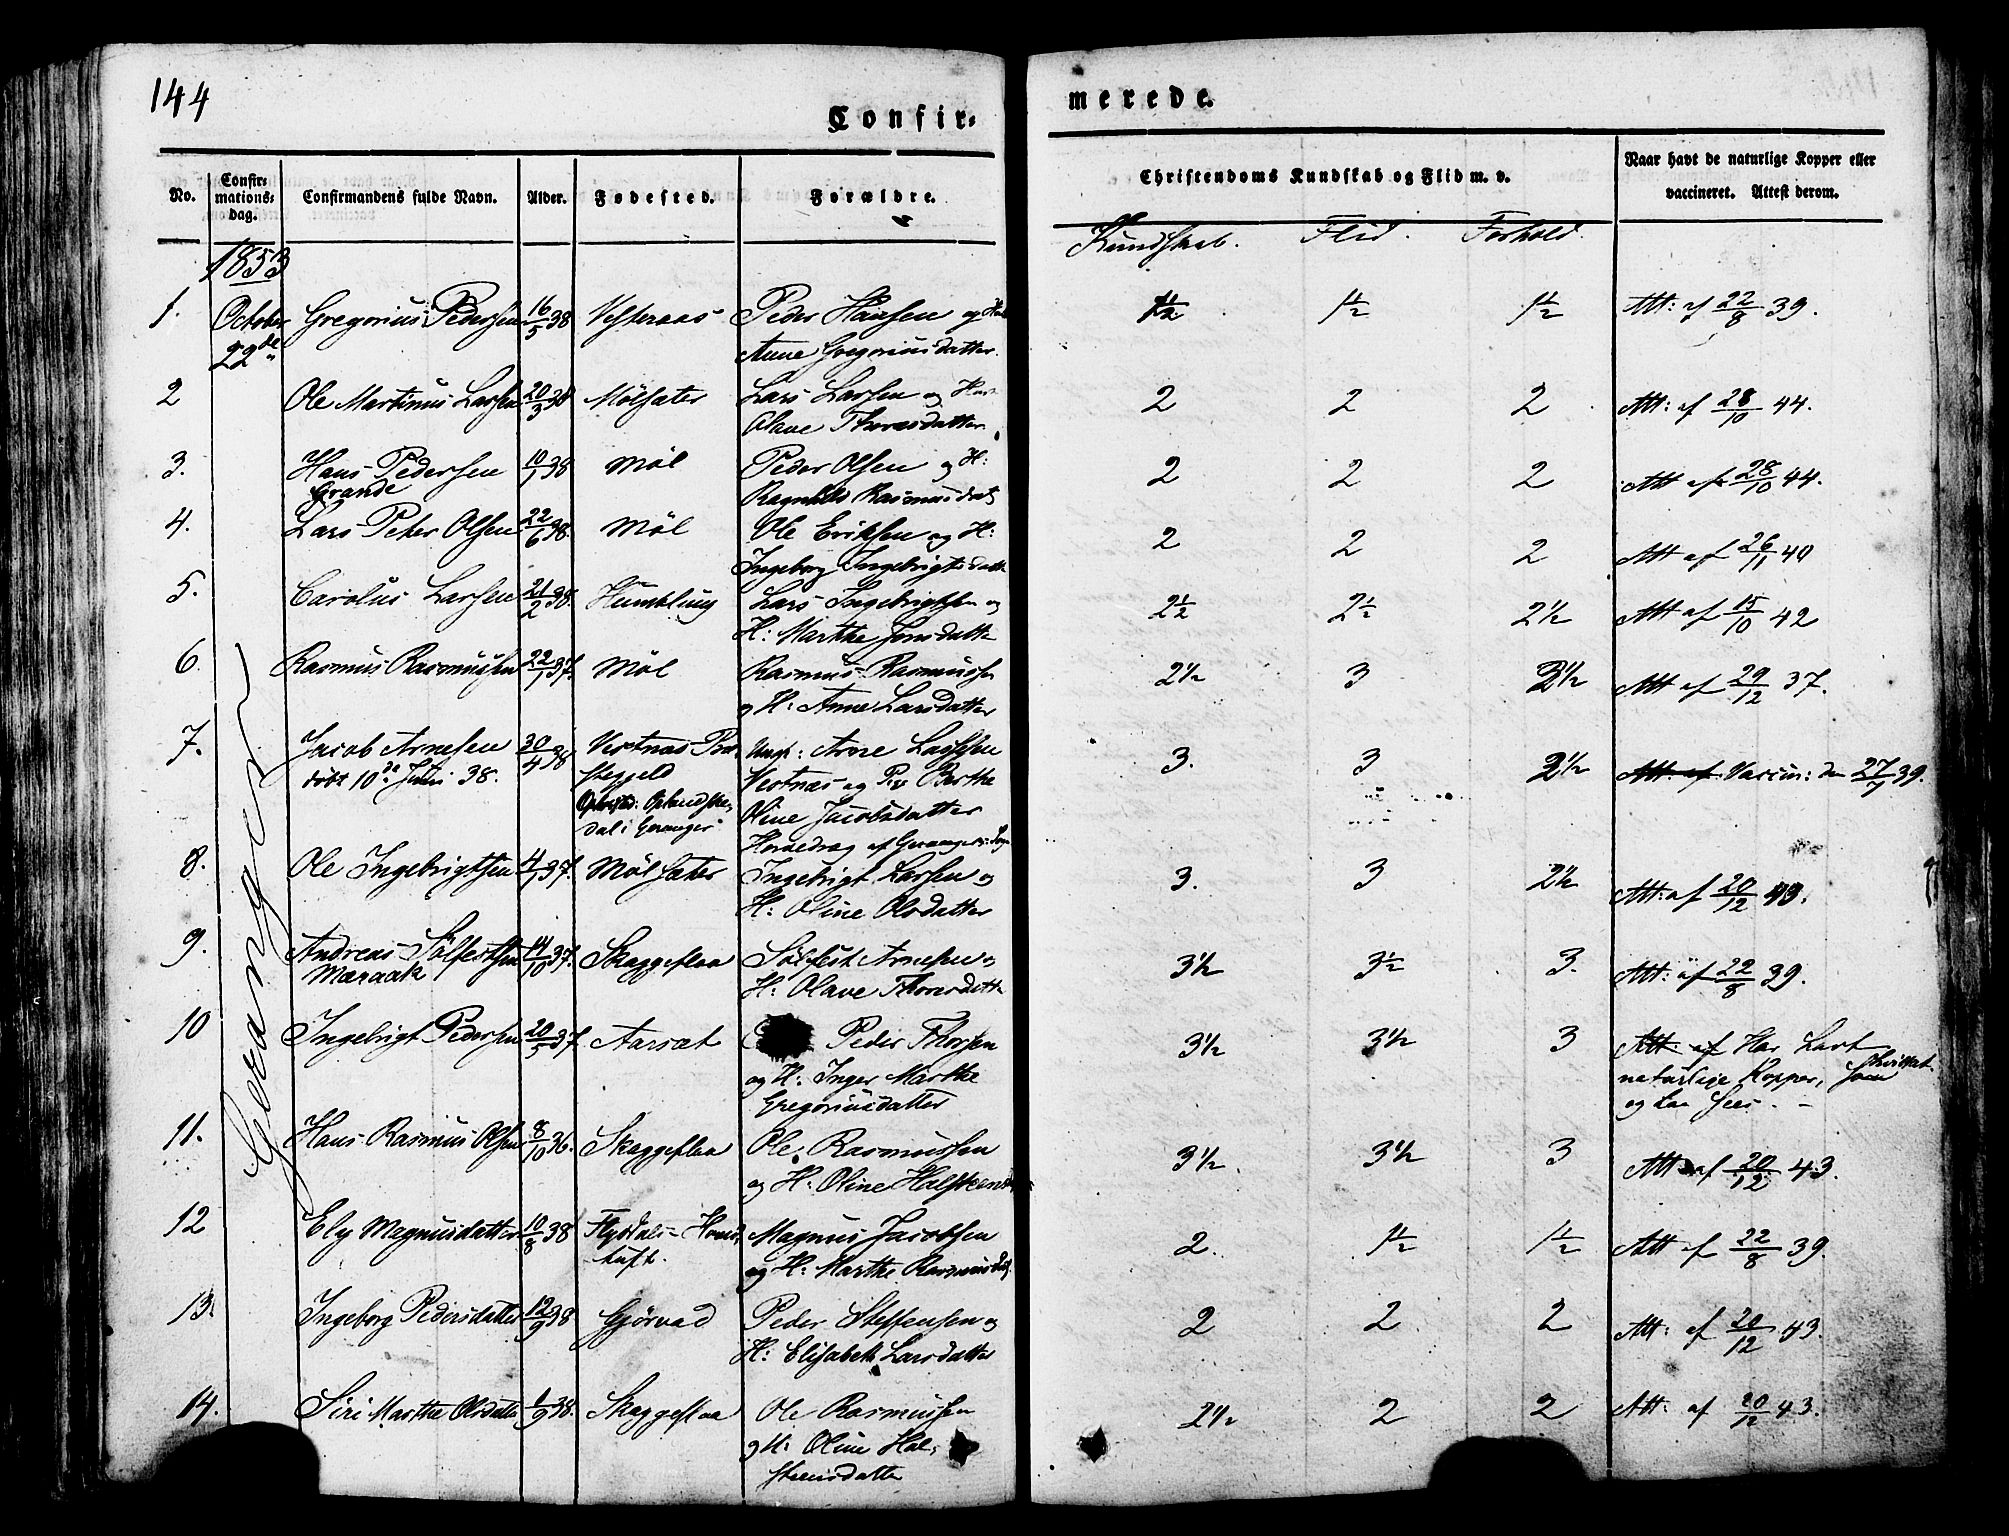 144
Confir-
merede.
No.
Confir-
mations-
dag.
Confirmandens fulde Navn.
Alder.
Fødested.
Forældre.
Christendoms Kundskab og Flid m. v.
Naar havt de naturlige Kopper eller
vaccineret. Attest derom.
Kundskab. Flid. Forhold.
1853
Geranger
1. October Gregorius Pedersen 16/5 38 Vesteraas Peder Hansen og 1½ 1½ 1½ Att: af 22/8 39.
22de Anne Gregoriusdatter
2 Ole Martinus Larsen 20/3 38 Mölsæter Lars Larsen og 2 2 2 Att: af 28/10 44.
Olave Thoresdatter
3. Hans Pedersen 10/1 38 Möl Peder Olsen og H: 2 2 2 Att af 28/10 44.
Grande Ragnild Rasmusdat
4. Lars Peter Olsen 22/6 38. Möl Ole Eriksen og H: 2 2 2 Att af 26/11 40
Ingeborg Ingebrigtsdatt
5. Carolus Larsen 21/2 38. Humlung Lars Ingebrigtsen og 2½ 2½ 2½ Att af 15/10 42
H: Marthe Jonsdatte
6. Rasmus Rasmussen 22/1 37. Möl Rasmus Rasmussen 2½ 3 2½ Att af 29/12 37.
og H: Anne Larsdatter
7. Jacob Arnesen 30/4 38 Vestnæs Præ- Ungk: Arne Larssen 3. 3 2½ Att: af Vaccin: den 27/7 39.
döbt 10de Juni 38. stegjeld Vestnæs og Pig Berthe
Opladskedal i Geranger Oline Jacobsdatter
8. Ole Ingebrigtsen 4/1 37. Mölsæter Ingebrigt Larsen og 3. 3 2½ Att: af 20/12 43.
H: Oline Olsdatter
9. Andreas Sölfestsen 14/10 37. Skaggeflaa Sölfest Arnesen og 3½ 3½ 3. Att: af 22/8 39.
Maraak H: Olave Thoresdatte
10 Ingebrigt Pedersen 20/5 37 Aarsæt Peder Thorsen 3½ 3½ 3 Att: af Har havt
og H: Inger Marthe naturlige Kopper,
Gregoriusdatter og kan sees. –
11. Hans Rasmus Olsen 8/10 36. Skaggeflaa Ole Rasmussen 3½. 3½ 3 Att af 20/12 43.
og H: Oline Halsteensd
12 Ely Magnusdatter 10/8 38 Flydals-Huus- Magnus Jacobsen 2. 1½ 1½ Att af 22/8 39.
tuft. og H: Marthe Rasmusdat
13. Ingeborg Pedersdatter 12/9 38 Gjörvad Peder Steffensen og 2 2 2 Att: af 20/12 43.
H: Elisabeth Larsdatter
14. Siri Marthe Olsdatte 1/9 38. Skaggeflaa Ole Rasmussen 2½ 2 2 Att: af 20/12 43.
og H: Oline Hal-
steensdatte